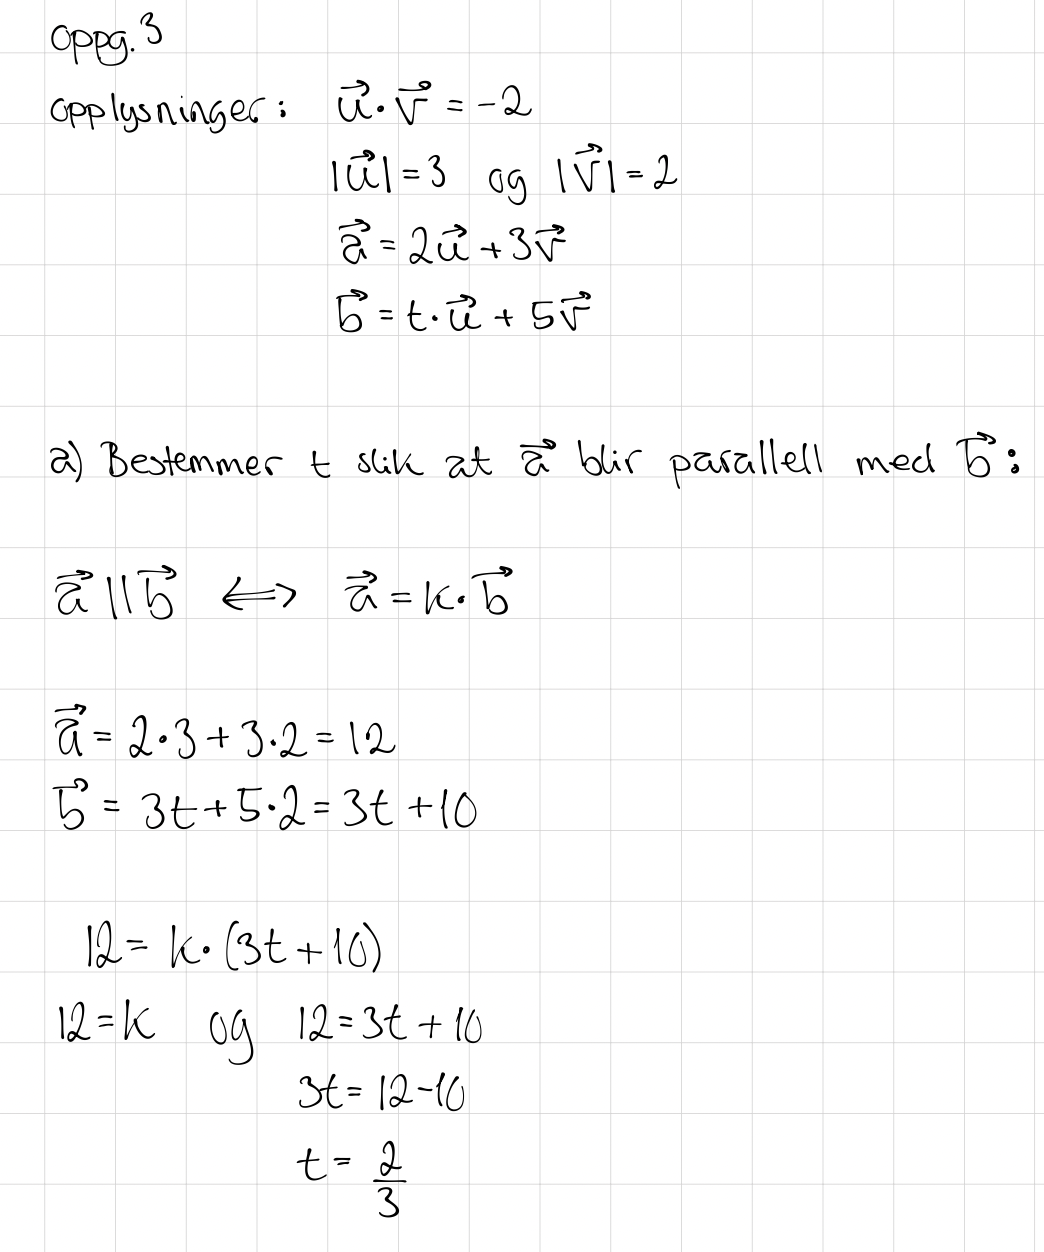 Oppg. 3
Opplysninger: $\vec{u} \cdot \vec{v} = -2$
$|\vec{u}| = 3$ og $|\vec{v}| = 2$
$\vec{a} = 2\vec{u} + 3\vec{v}$
$\vec{b} = t \cdot \vec{u} + 5\vec{v}$
a) Bestemmer t slik at $\vec{a}$ blir parallell med $\vec{b}$:
$\vec{a} \parallel \vec{b} \iff \vec{a} = k \cdot \vec{b}$
$\vec{a} = 2 \cdot 3 + 3 \cdot 2 = 12$
$\vec{b} = 3t + 5 \cdot 2 = 3t + 10$
$12 = k \cdot (3t + 10)$
$12 = k$ og $12 = 3t + 10$
$3t = 12 - 10$
$t = \frac{2}{3}$